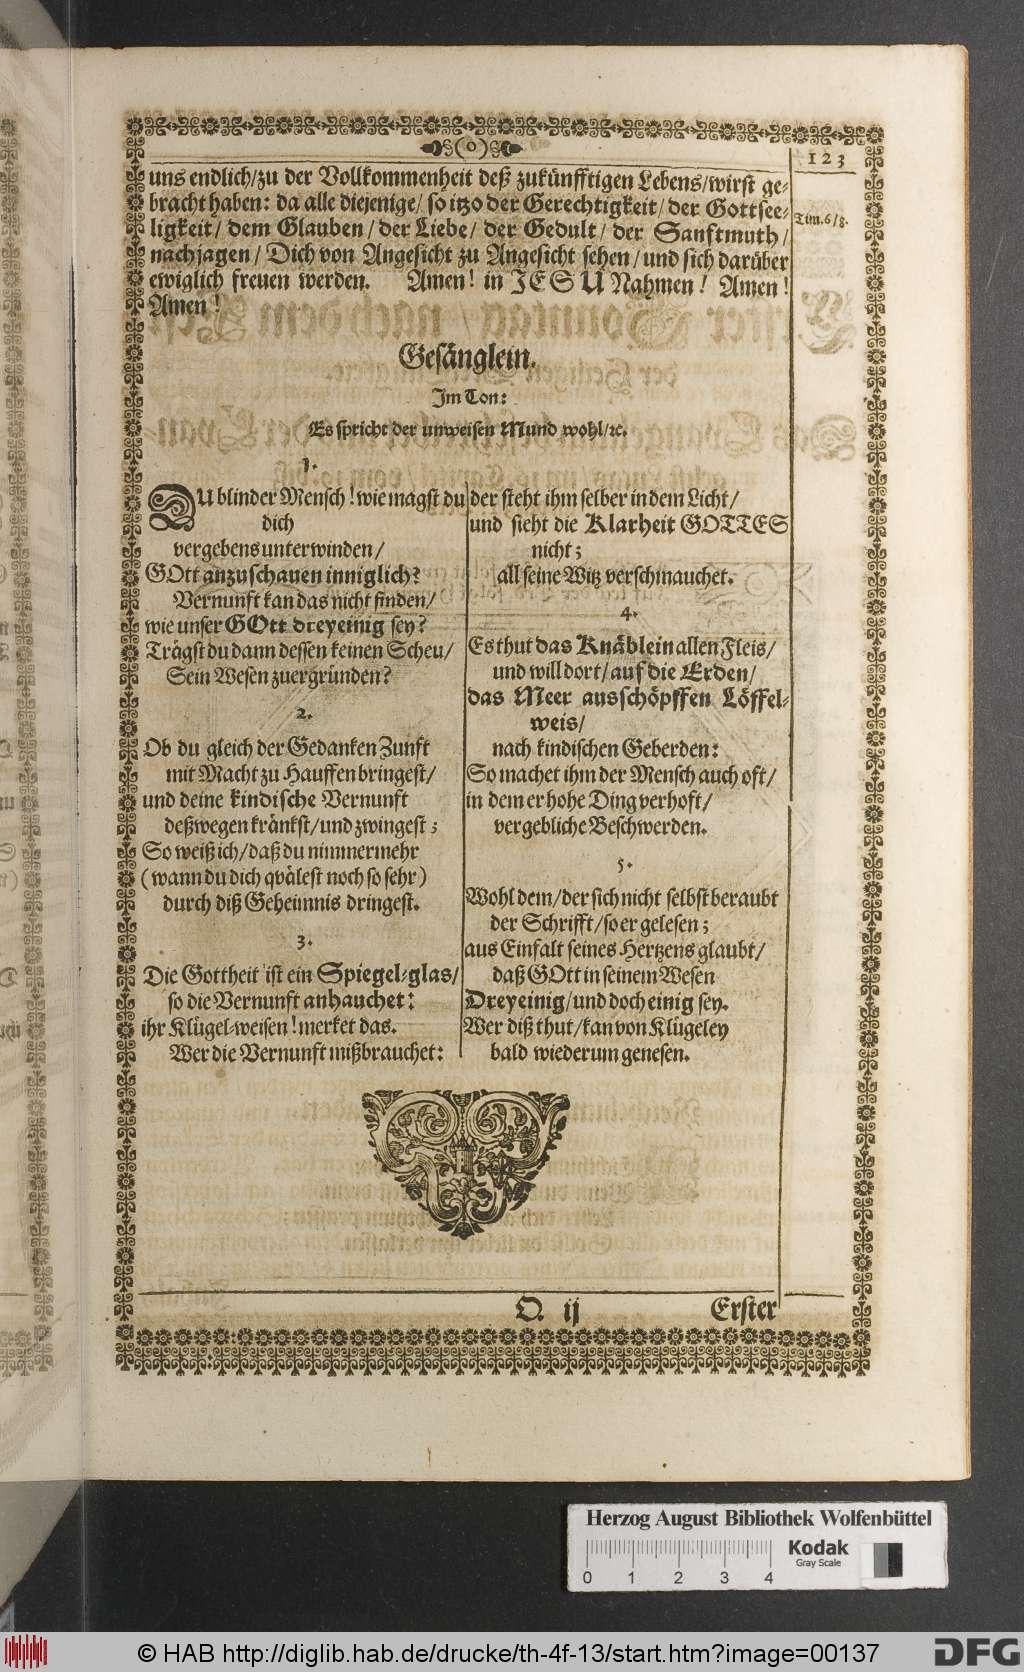 (o)
123
uns endlich/zu der Vollkommenheit deß zukünfftigen Lebens/wirst ge-
bracht haben: da alle diejenige/ so itzo der Gerechtigkeit/ der Gottsee-
ligkeit/ dem Glauben/ der Liebe/ der Gedult/ der Sanftmuth/
nachjagen/ Dich von Angesicht zu Angesicht sehen/ und sich darüber
ewiglich freuen werden. Amen! in JESU Nahmen! Amen!
Amen!
Tim.6/8.
Gesänglein.
Im Ton:
Es spricht der unweisen Mund wohl/ꝛc.
1.
DU blinder Mensch! wie magst du
dich
vergebens unterwinden/
GOtt anzuschauen inniglich?
Vernunft kan das nicht finden/
wie unser GOtt dreyeinig sey?
Trägst du dann dessen keinen Scheu/
Sein Wesen zuergründen?
2.
Ob du gleich der Gedanken Zunft
mit Macht zu Hauffen bringest/
und deine kindische Vernunft
deßwegen kränkst/und zwingest;
So weiß ich/daß du nimmermehr
(wann du dich qvälest noch so sehr)
durch diß Geheimnis dringest.
3.
Die Gottheit ist ein Spiegel-glas/
so die Vernunft anhauchet:
ihr Klügel-weisen! merket das.
Wer die Vernunft mißbrauchet:
der steht ihm selber in dem Licht/
und sieht die Klarheit GOTTES
nicht;
all seine Witz verschmauchet.
4.
Es thut das Knäblein allen Fleis/
und will dort/ auf die Erden/
das Meer ausschöpffen Löffel-
weis/
nach kindischen Geberden:
So machet ihm der Mensch auch oft/
in dem er hohe Ding verhoft/
vergebliche Beschwerden.
5.
Wohl dem/der sich nicht selbst beraubt
der Schrifft/so er gelesen;
aus Einfalt seines Hertzens glaubt/
daß GOtt in seinem Wesen
Dreyeinig/und doch einig sey.
Wer diß thut/kan von Klügeley
bald wiederum genesen.
O. ij
Erster
Herzog August Bibliothek Wolfenbüttel
Kodak
Gray Scale
0 1 2 3 4
© HAB http://diglib.hab.de/drucke/th-4f-13/start.htm?image=00137
DFG